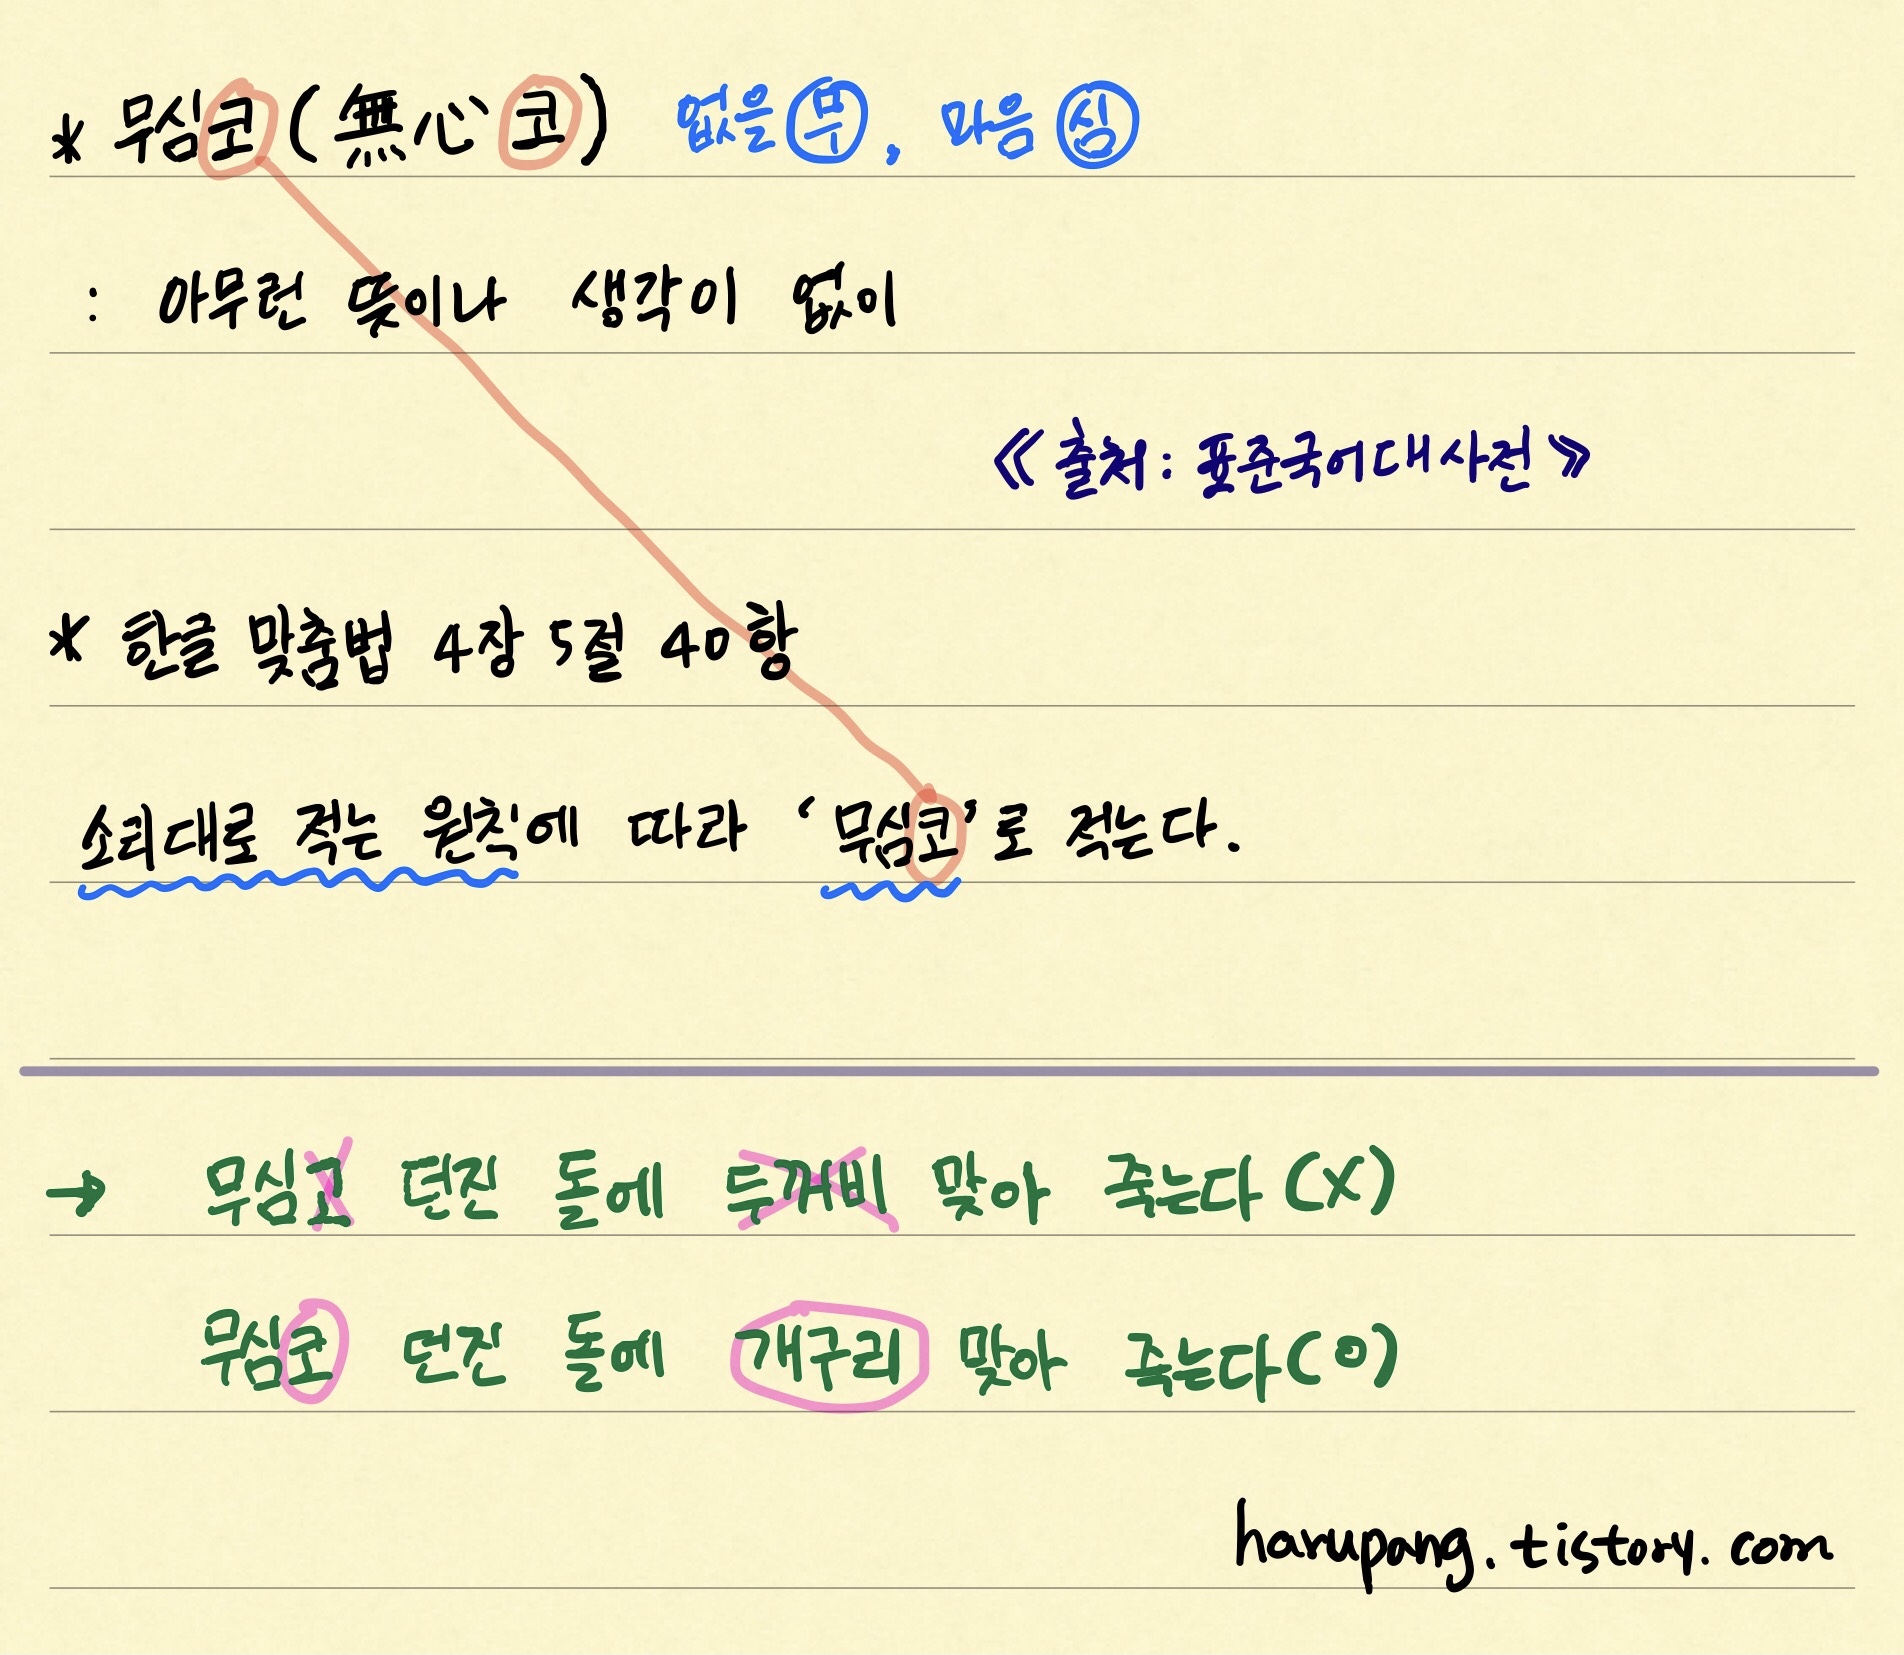 * 무심코(無心코) 없을 무, 마음 심
: 아무런 뜻이나 생각이 없이
《출처: 표준국어대사전》
* 한글 맞춤법 4장 5절 40항
소리대로 적는 원칙에 따라 '무심코'로 적는다.
→ 무심고 던진 돌에 두꺼비 맞아 죽는다(X)
무심코 던진 돌에 개구리 맞아 죽는다(O)
harupang.tistory.com